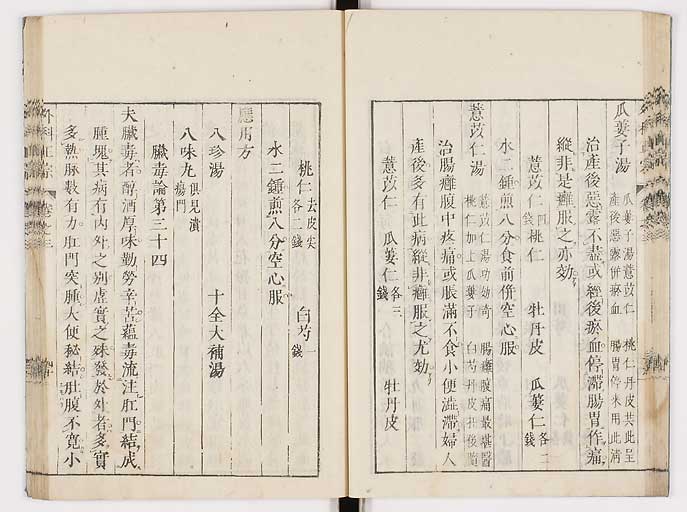 瓜蔞子湯 瓜蔞子湯薏苡仁 桃仁丹皮共此呈
產後惡露併瘀血 腸胃停來用此清
治產後惡露不盡或經後瘀血停滯腸胃作痛
縱非是癰服之亦效
薏苡仁四錢 桃仁 牡丹皮 瓜蔞仁各二錢
水二鍾煎八分食前併空心服
薏苡仁湯 薏苡仁湯功効奇 腸癰腹痛最堪醫
桃仁加上瓜蔞子 白芍丹皮
治腸癰腹中疼痛或脹滿不食小便澁滯婦人
產後多有此病縱非癰服之尤効
薏苡仁 瓜蔞仁各三錢 牡丹皮
桃仁去皮尖各二錢 白芍一錢
水二鍾煎八分空心服
應用方
八珍湯 十全大補湯
八味丸俱見潰瘍門
臟毒論第三十四
夫臟毒者醇酒厚味勤勞辛苦蘊毒流注肛門結成
腫塊其病有內外之別虛實之殊發於外者多實
多熱脉數有力肛門突腫大便秘結肚腹不寬小
外科正宗 卷之三